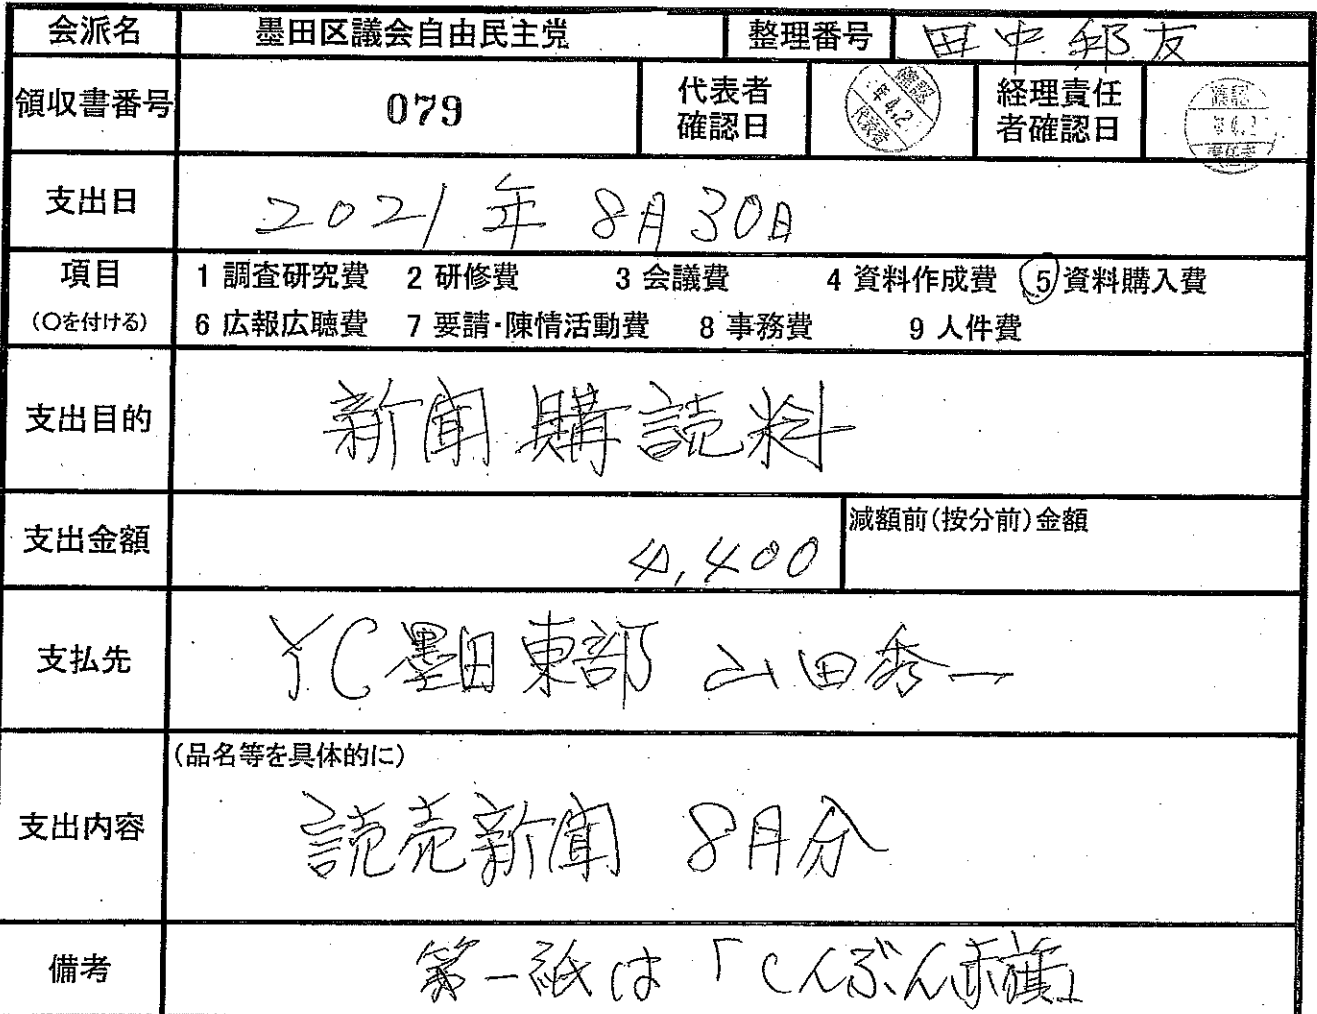 会派名 墨田区議会自由民主党 整理番号 田中邦友
領収書番号 079 代表者確認日 確認 年4.2 代表者 経理責任者確認日 確認 年4.2 責任者
支出日 2021年8月30日
項目 1 調査研究費 2 研修費 3 会議費 4 資料作成費 5 資料購入費
(○を付ける) 6 広報広聴費 7 要請・陳情活動費 8 事務費 9 人件費
支出目的 新聞購読料
支出金額 4,400 減額前(按分前)金額
支払先 YC墨田東部 山田秀一
(品名等を具体的に)
支出内容 読売新聞 8月分
備考 第一紙は「しんぶん赤旗」